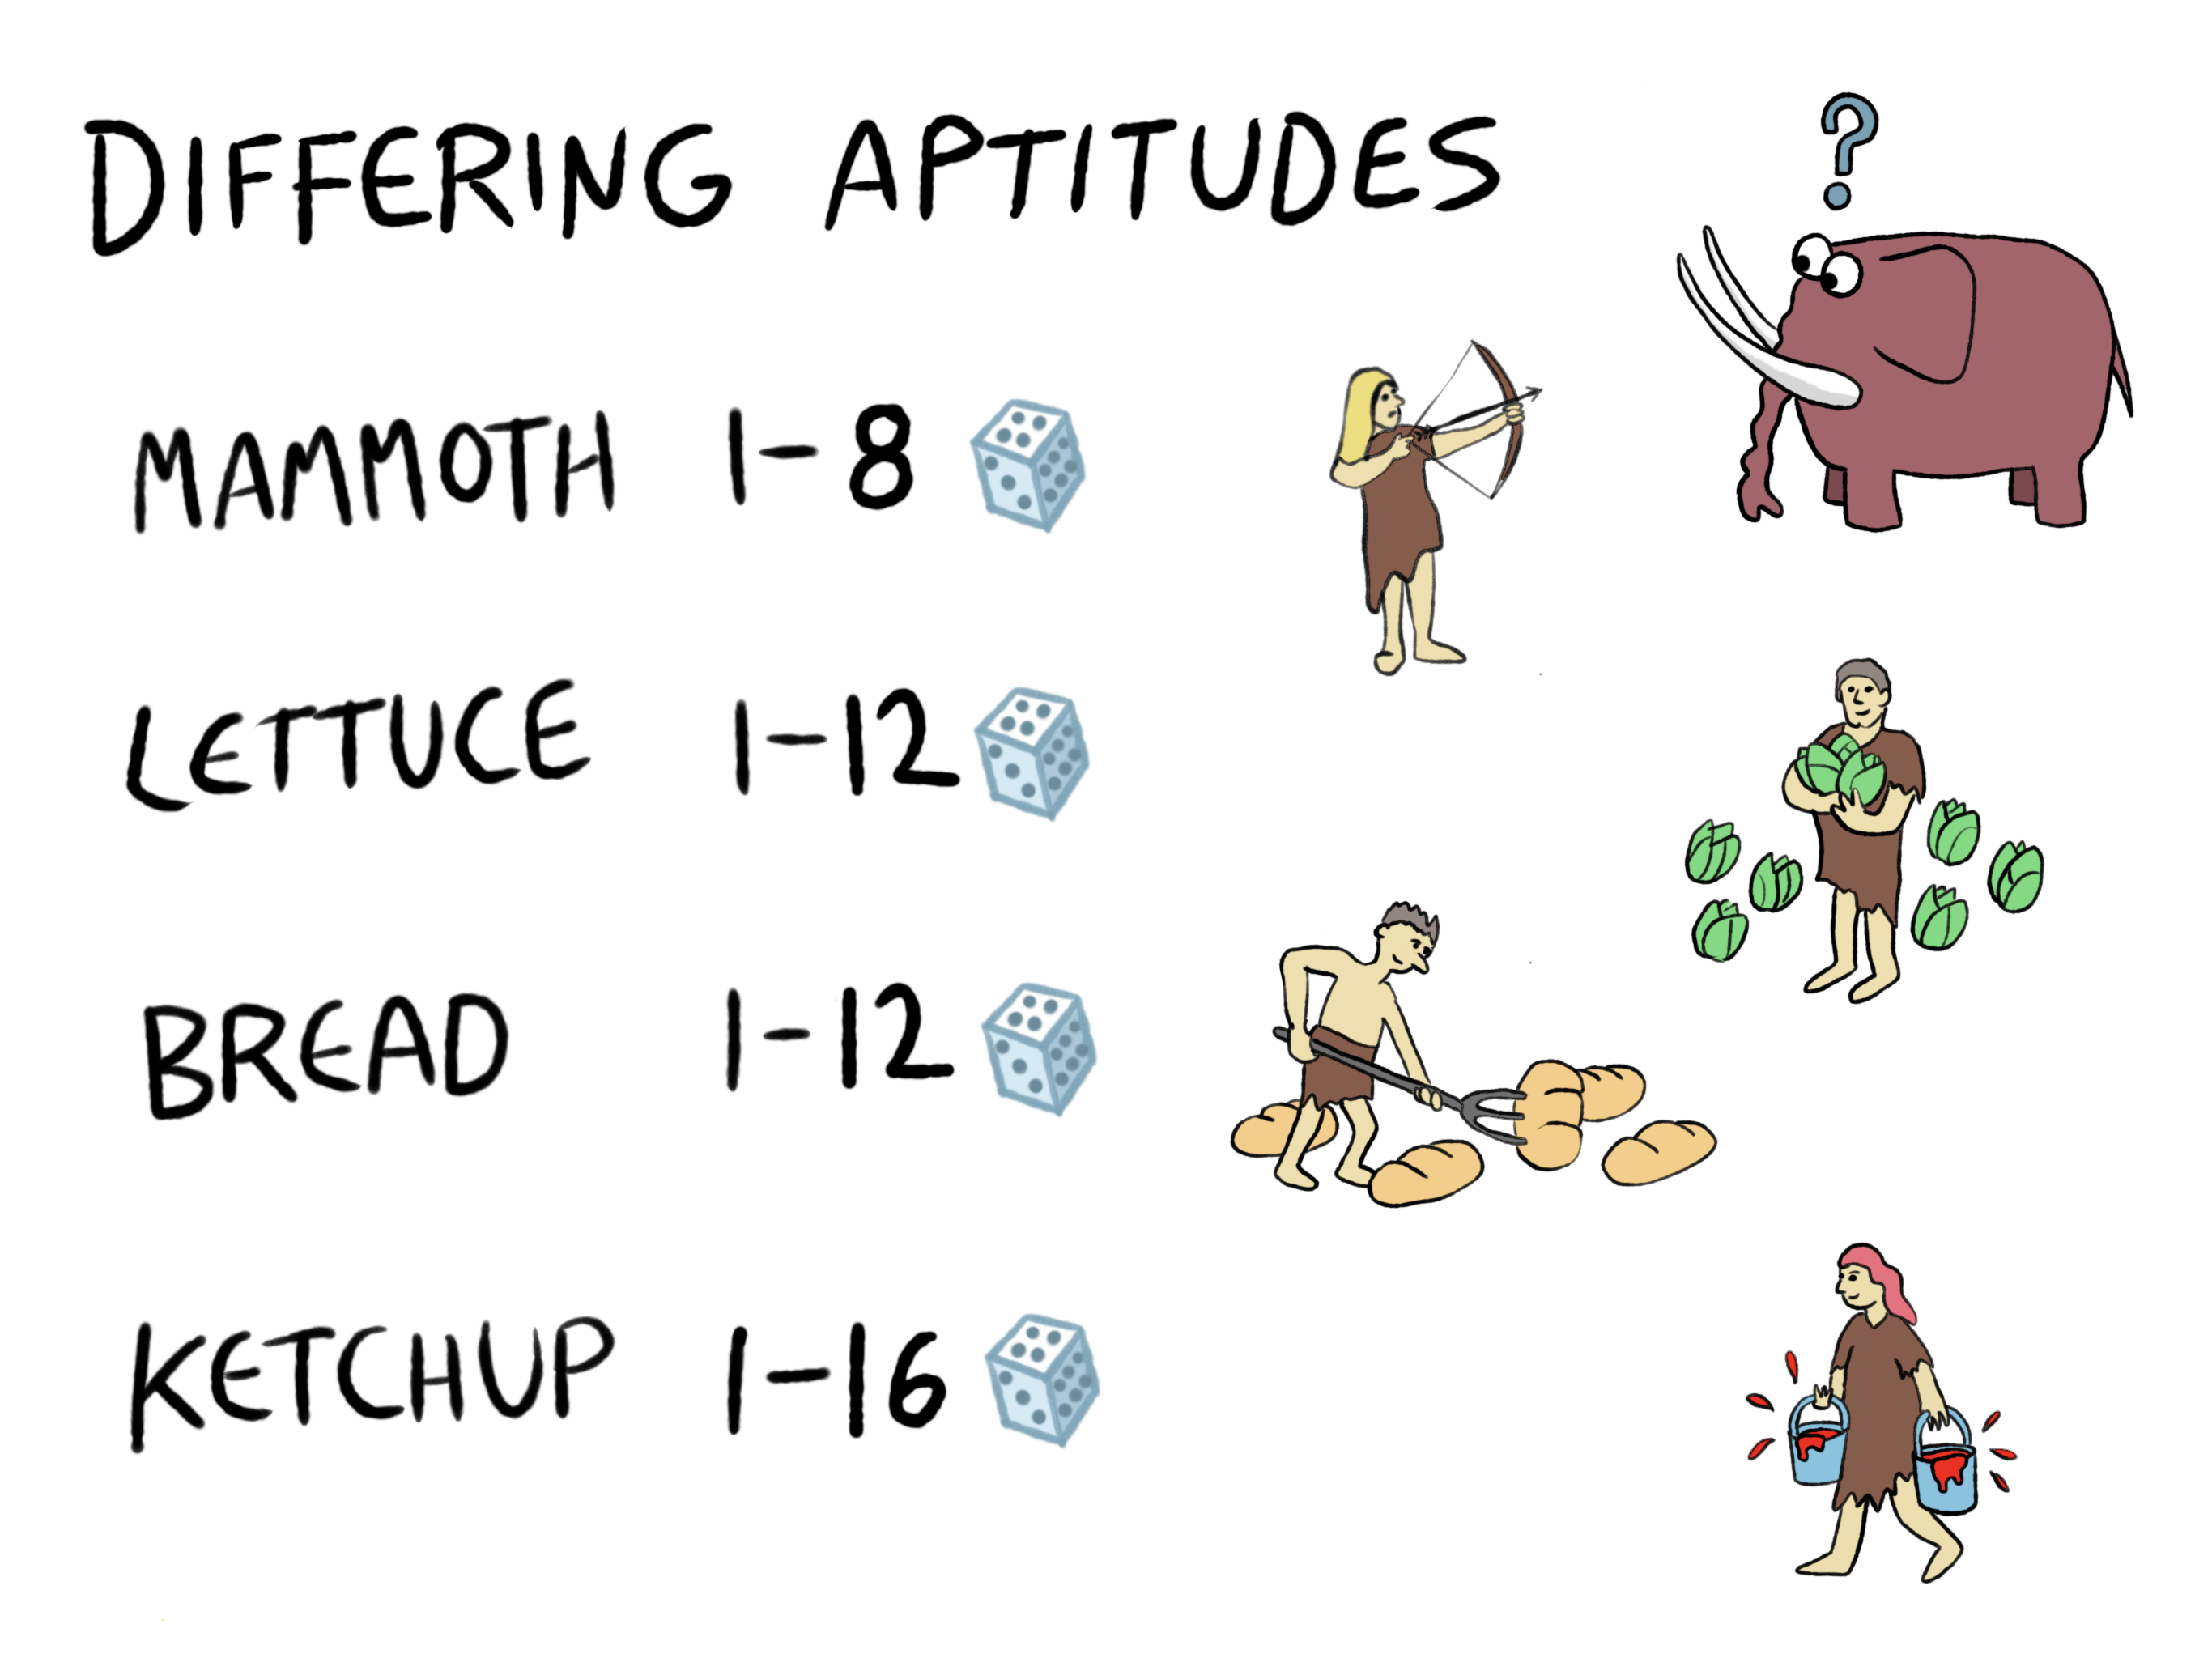 DIFFERING APTITUDES
?
MAMMOTH 1-8
LETTUCE 1-12
BREAD 1-12
KETCHUP 1-16